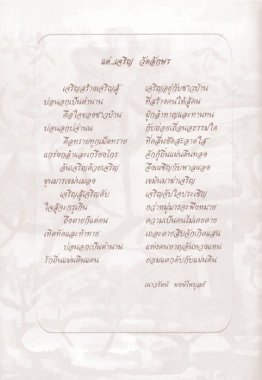 แด่...เจริญ วัดอักษร
เจริญสร้างเจริญสู้
บ่อนอกเป็นตำนาน
คือใจของชาวบ้าน
บ่อนอกบ่จำนน
คือทรายทุกเม็ดทราย
แกร่งกล้าและเกรียงไกร
อันเจริญด้วยเจริญ
ขุนมารเขม่นมอง
เจริญสู้เจริญดับ
ใจสู้จะกรูเกิน
ถึงตายก็แต่คน
เทิดทัดและท้าทาย
บ่อนอกเป็นตำนาน
รักถิ่นแผ่นดินแดน
เจริญอยู่กับชาวบ้าน
ที่สร้างคนให้สู้คน
ผู้กล้าหาญและทานทน
กับ
ที่คลื่นซัดสะอาดใส
รักกู้ถิ่นแผ่นดินทอง
จึงเผชิญกับพาลผอง
เขม้นมาฆ่าเจริญ
เจริญดับใจประเชิญ
กว่าหมู่มารจะพึงหมาย
ความเป็นคนไม่เคยตาย
เถอะตายสิบจักเกิดแสน
แห่งคนหาญเดินทางแทน
ยอมแตกดับกับแผ่นดิน
เนาวรัตน์ พงษ์ไพบูลย์